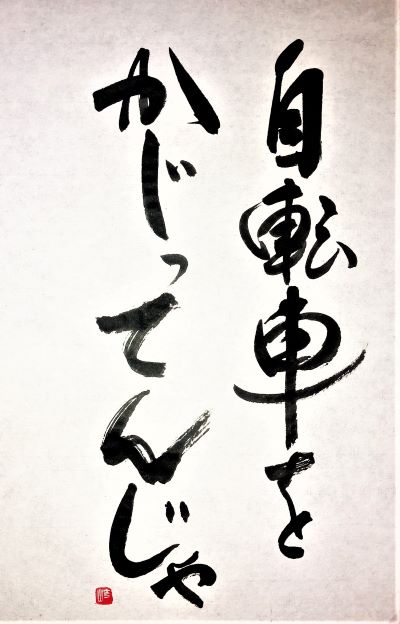 自転車を
かじってんじゃ